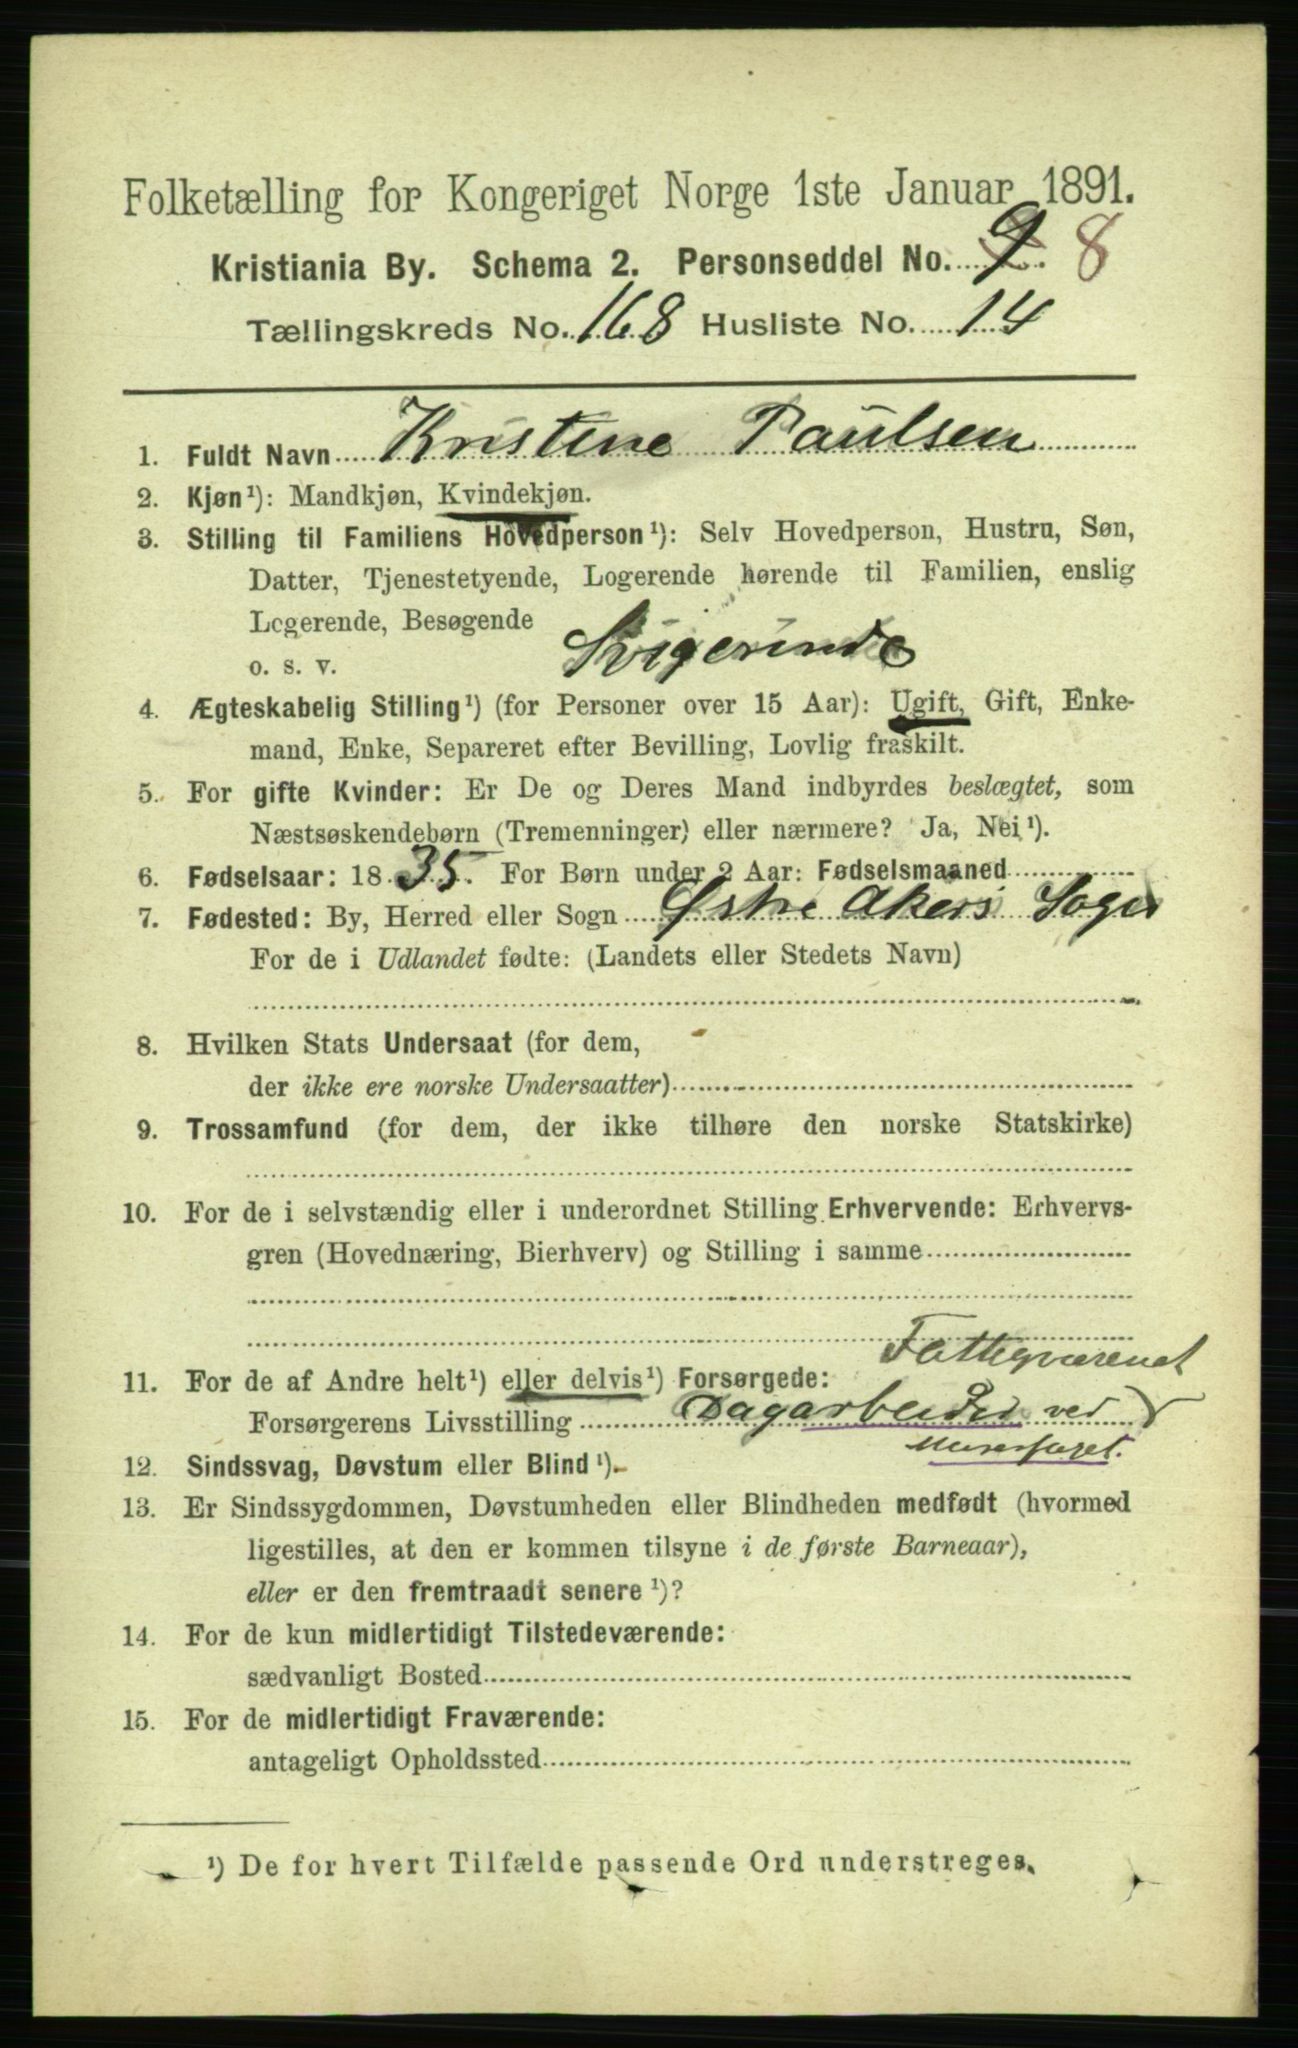 Folketælling for Kongeriget Norge 1ste Januar 1891.
Kristiania By. Schema 2. Personseddel No. 9 8
Tællingskreds No. 168 Husliste No. 14
1. Fuldt Navn Kristine Paulsen
2. Kjøn¹): Mandkjøn, Kvindekjøn.
3. Stilling til Familiens Hovedperson¹): Selv Hovedperson, Hustru, Søn,
Datter, Tjenestetyende, Logerende hørende til Familien, enslig
Logerende, Besøgende
o. s. v. Svigerinde
4. Ægteskabelig Stilling¹) (for Personer over 15 Aar): Ugift, Gift, Enke-
mand, Enke, Separeret efter Bevilling, Lovlig fraskilt.
5. For gifte Kvinder: Er De og Deres Mand indbyrdes beslægtet, som
Næstsøskendebørn (Tremenninger) eller nærmere? Ja, Nei¹).
6. Fødselsaar: 1835. For Børn under 2 Aar: Fødselsmaaned
7. Fødested: By, Herred eller Sogn Østre Akers Sogn
For de i Udlandet fødte: (Landets eller Stedets Navn)
8. Hvilken Stats Undersaat (for dem,
der ikke ere norske Undersaatter)
9. Trossamfund (for dem, der ikke tilhøre den norske Statskirke)
10. For de i selvstændig eller i underordnet Stilling Erhvervende: Erhvervs-
gren (Hovednæring, Bierhverv) og Stilling i samme
Fattigvæsenet
11. For de af Andre helt¹) eller delvis¹) Forsørgede:
Forsørgerens Livsstilling Dagarbeider ved
Murerfaget.
12. Sindssvag, Døvstum eller Blind¹).
13. Er Sindssygdommen, Døvstumheden eller Blindheden medfødt (hvormed
ligestilles, at den er kommen tilsyne i de første Barneaar),
eller er den fremtraadt senere¹)?
14. For de kun midlertidigt Tilstedeværende:
sædvanligt Bosted
15. For de midlertidigt Fraværende:
antageligt Opholdssted
¹) De for hvert Tilfælde passende Ord understreges.